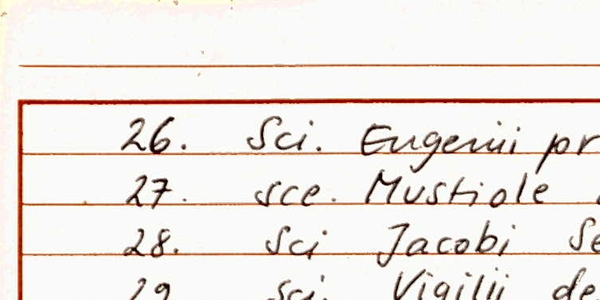 26. Sci. Eugenii pr
27. sce. Mustiole
28. Sci Jacobi Se
29 sci. Vigilii de